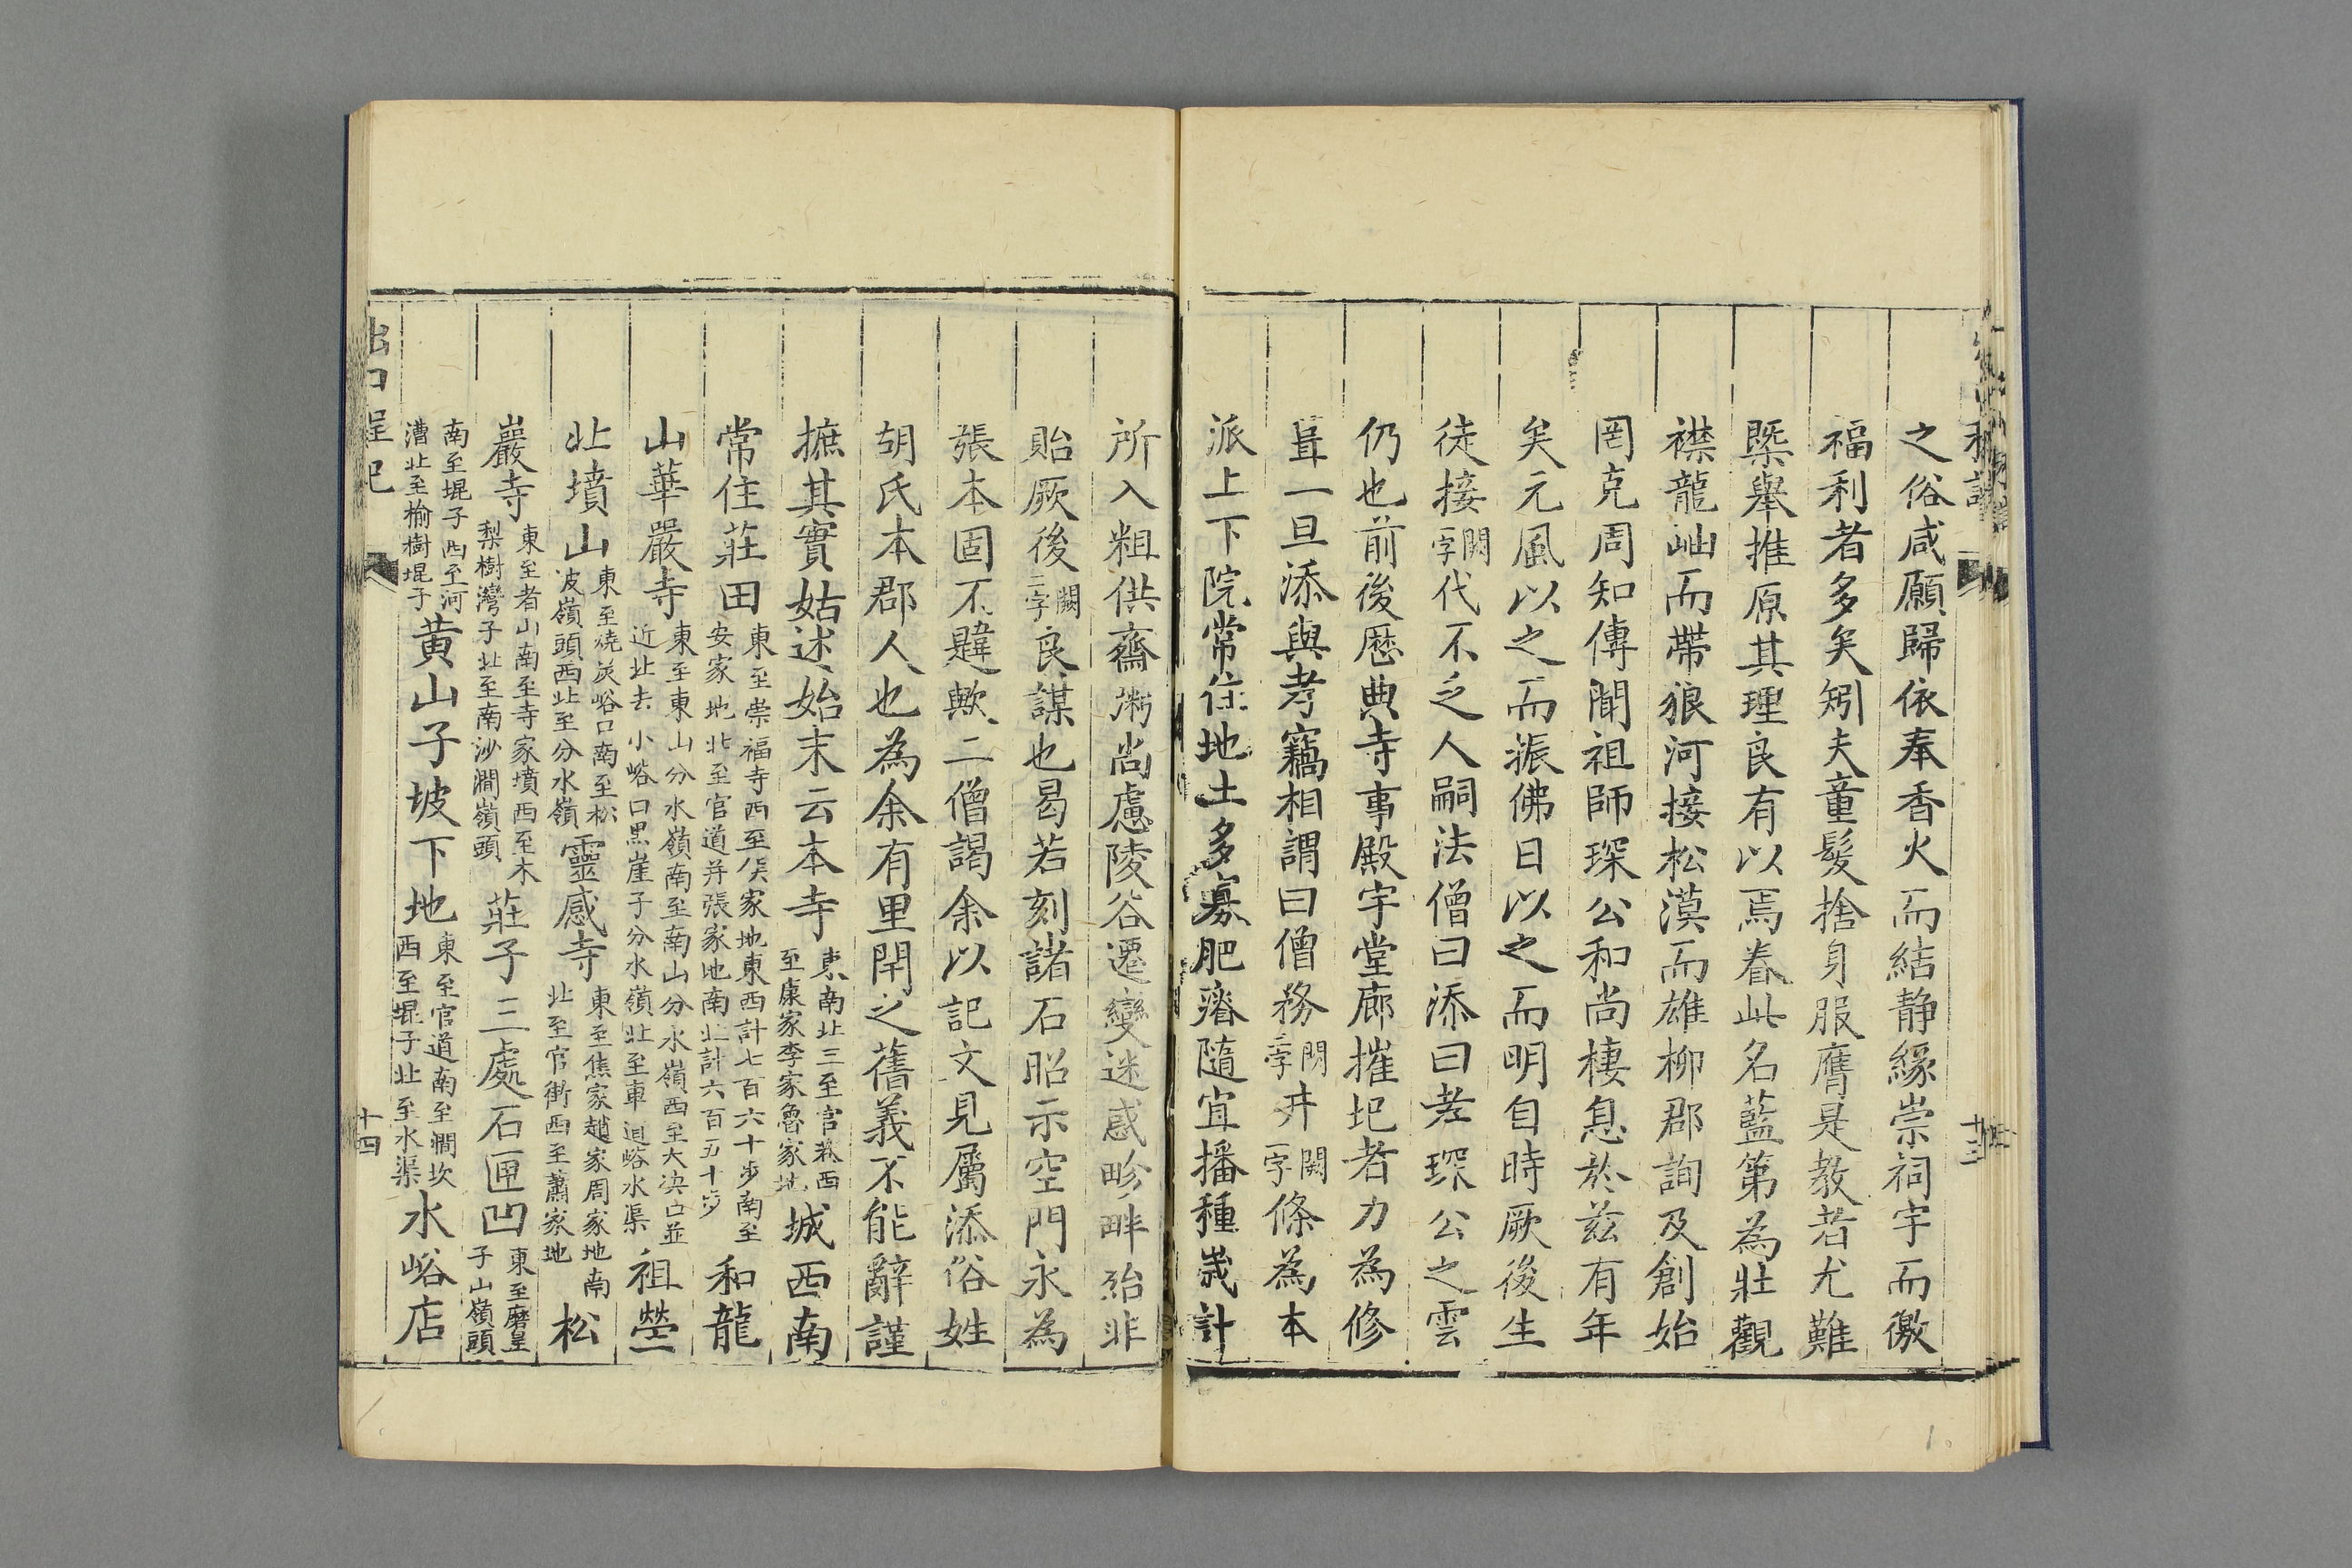 之俗咸願歸依奉香火而結静緣崇祠宇而徼
福利者多矣矧夫童髮捨身服膺是教者尤難
槩舉推原其理良有以焉眷此名藍第為壯觀
襟龍岫而帶狼河接松漠而雄柳郡詢及創始
罔克周知傳聞祖師琛公和尚棲息於兹有年
矣元風以之而振佛日以之而明自時厥後生
徒接闕字代不乏人嗣法僧曰添曰孝琛公之雲
仍也前後歷典寺事殿宇堂廊摧圮者力為修
葺一旦添與孝竊相謂曰僧務闕二字井闕一字條為本
派上下院常住地土多寡肥瘠隨宜播種歲計
所入粗供齋粥尚慮陵谷遷變迷惑畛畔殆非
貽厥後闕二字良謀也曷若刻諸石昭示空門永為
張本固不韙歟二僧謁余以記文見屬添俗姓
胡氏本郡人也為余有里閈之舊義不能辭謹
摭其實姑述始末云本寺東南北三至官巷西至康家李家魯家地城西南
常住莊田東至崇福寺西至侯家地東西計七百六十步南至安家地北至官道并張家地南北計六百五十步和龍
山華嚴寺東至東山分水嶺南至南山分水嶺西至大決凸並近北去小峪口黑崖子分水嶺北至車迴峪水渠祖塋
北墳山東至燒炭峪口南至松波嶺頭西北至分水嶺靈感寺東至焦家趙家周家地南北至官衙西至蕭家地松
巖寺東至者山南至寺家墳西至木梨樹灣子北至南沙澗嶺頭莊子三處石匣凹東至磨皇子山嶺頭
南至堒子西至河漕北至榆樹堒子黄山子坡下地東至官道南至澗坎西至堒子北至水渠水峪店
出口程記
十四